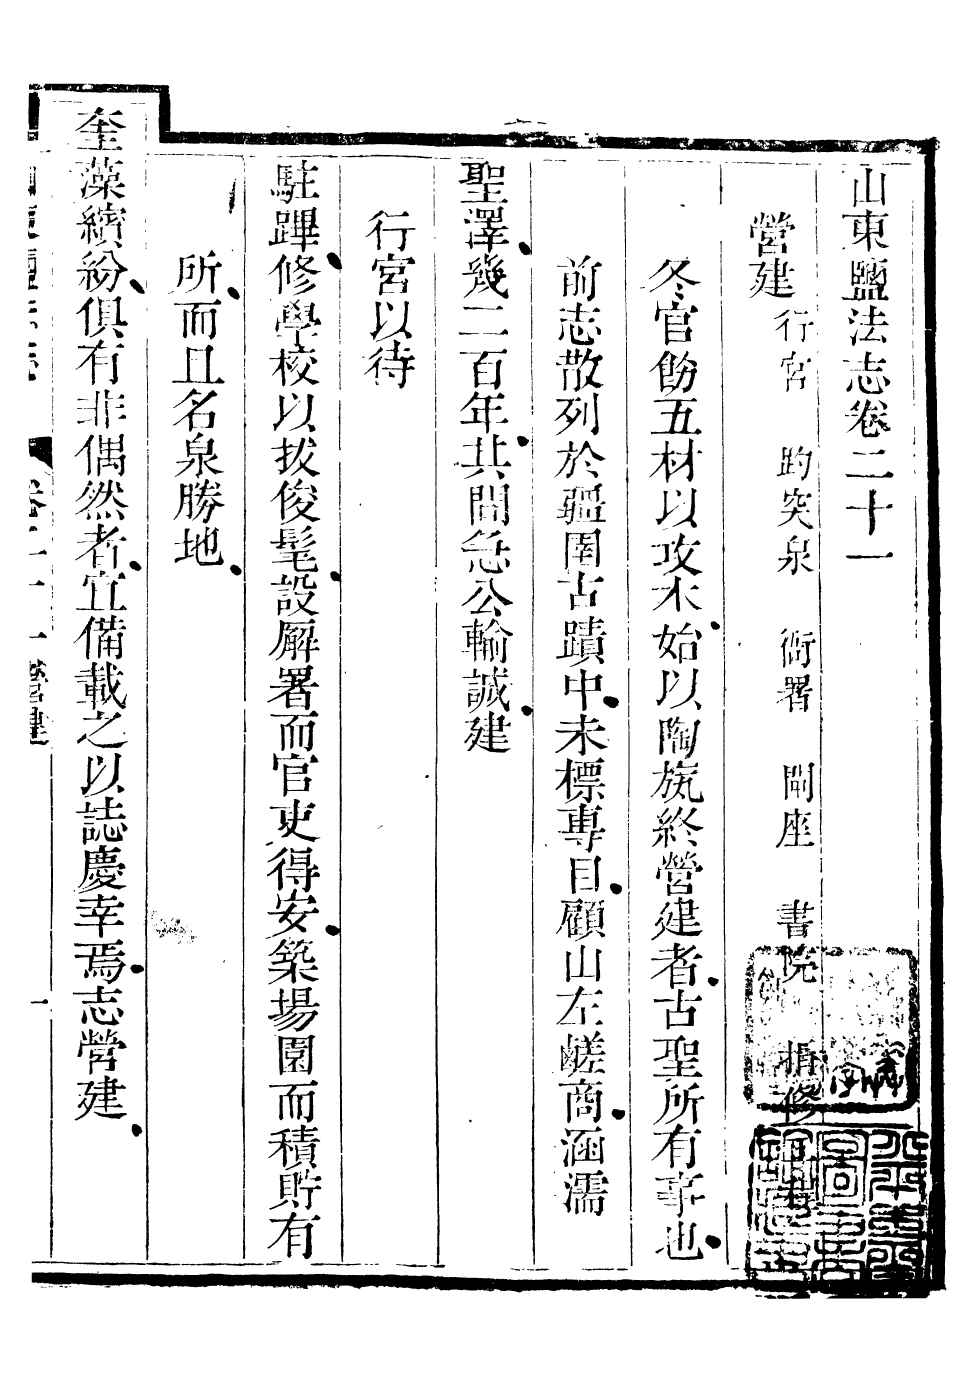 山東鹽法志卷二十一
營建 行宮 趵突泉 衙署 閘座 書院 捐修
冬官飭五材以攻木始以陶旊終營建者古聖所有事也
前志散列於疆圉古蹟中未標專目顧山左鹺商涵濡
聖澤幾二百年其間急公輸誠建
行宮以待
駐蹕修學校以拔俊髦設廨署而官吏得安築場園而積貯有
所而且名泉勝地
奎藻繽紛俱有非偶然者宜備載之以誌慶幸焉志營建
卷二十一營建 一